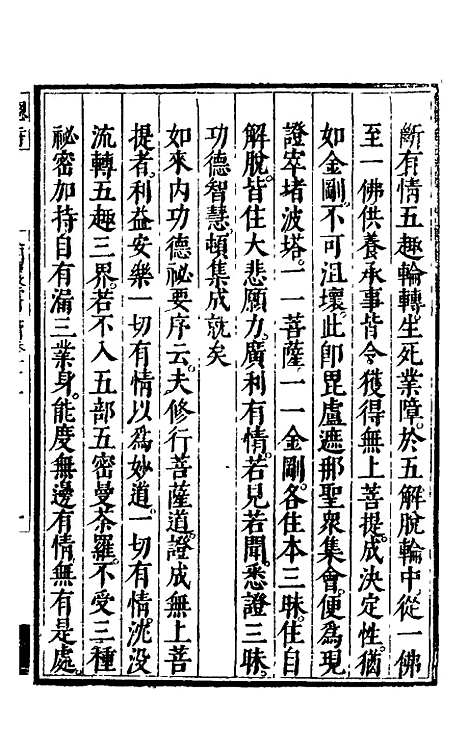 斷有情五趣輪轉生死業障。於五解脫輪中。從一佛
至一佛供養承事。皆令獲得無上菩提。成決定性。猶
如金剛。不可沮壞。此卽毘盧遮那聖衆集會。便爲現
證窣堵波塔。一一菩薩。一一金剛。各住本三昧。住自
解脫。皆住大悲願力。廣利有情。若見若聞。悉證三昧。
功德智慧。頓集成就矣
如來內功德祕要序云。夫修行菩薩道。證成無上菩
提者。利益安樂一切有情以爲妙道。一切有情沈没
流轉五趣三界。若不入五部五密曼荼羅。不受三種
祕密加持。自有漏三業身。能度無邊有情。無有是處。